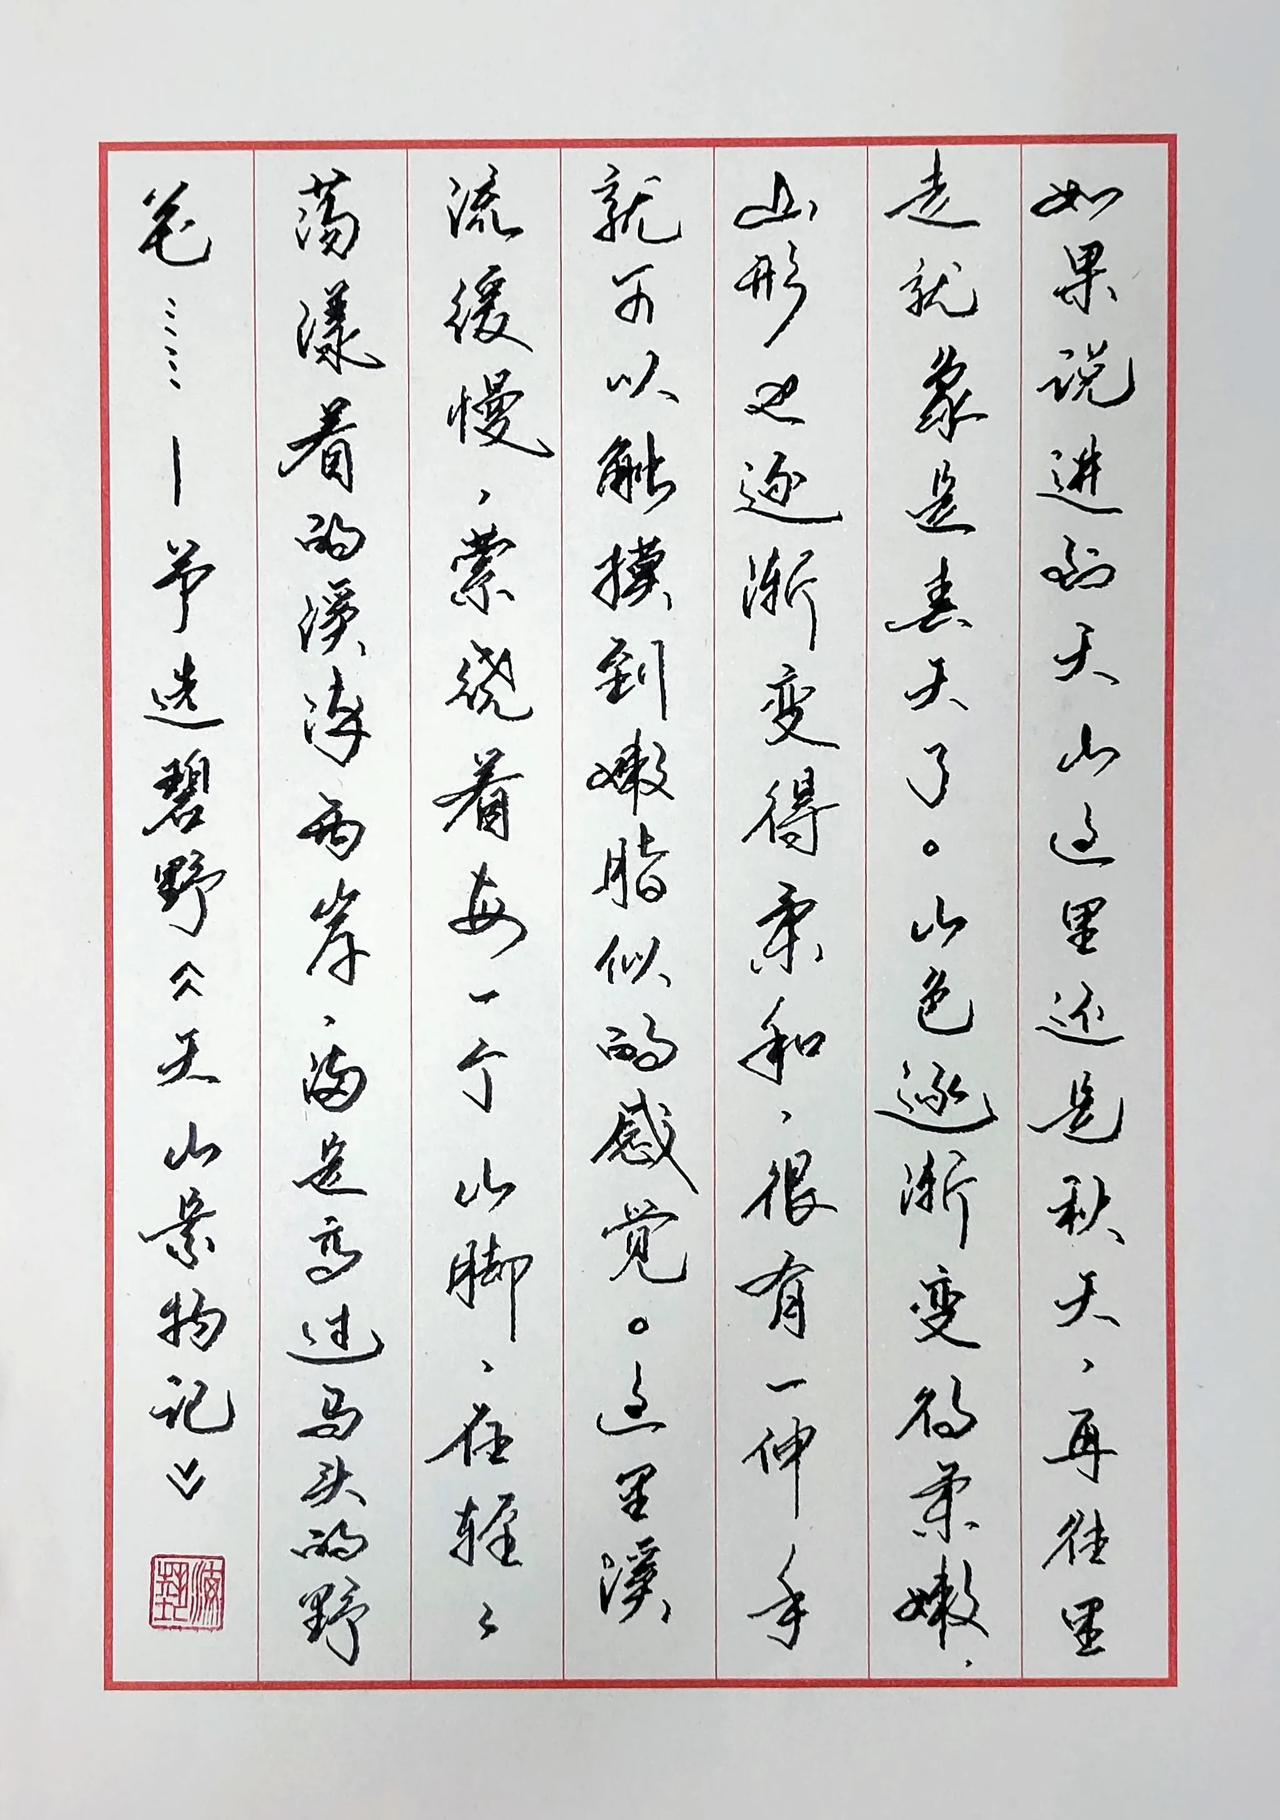 如果说进到天山这里还是秋天，再往里
走就象是春天了。山色逐渐变得柔嫩，
山形也逐渐变得柔和，很有一伸手
就可以触摸到嫩脂似的感觉。这里溪
流缓慢，萦绕着每一个山脚，在轻轻
荡漾着的溪流两岸，满是高过马头的野
花……—节选碧野《天山景物记》